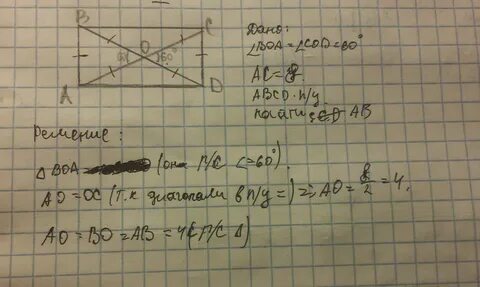 B
C
O
60°
60°
A
D
Дано:
∠BOA = ∠COD = 60°
AC = 8
ABCD - п/у
найти: AB
Решение:
△ BOA (он Р/С ∠=60°)
AO = OC (т.к диагонали в п/у =) => AO = 8/2 = 4.
AO = BO = AB = 4 (Р/С △)